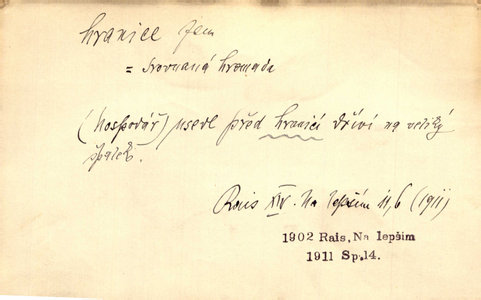 hranice fem
= srovnaná hromada
(hospodář) usedl před hranicí dříví na veliký
špalek.
Rais XIV. Na lepším II, 6 (1911)
1902 Rais, Na lepším
1911 Sp.14.